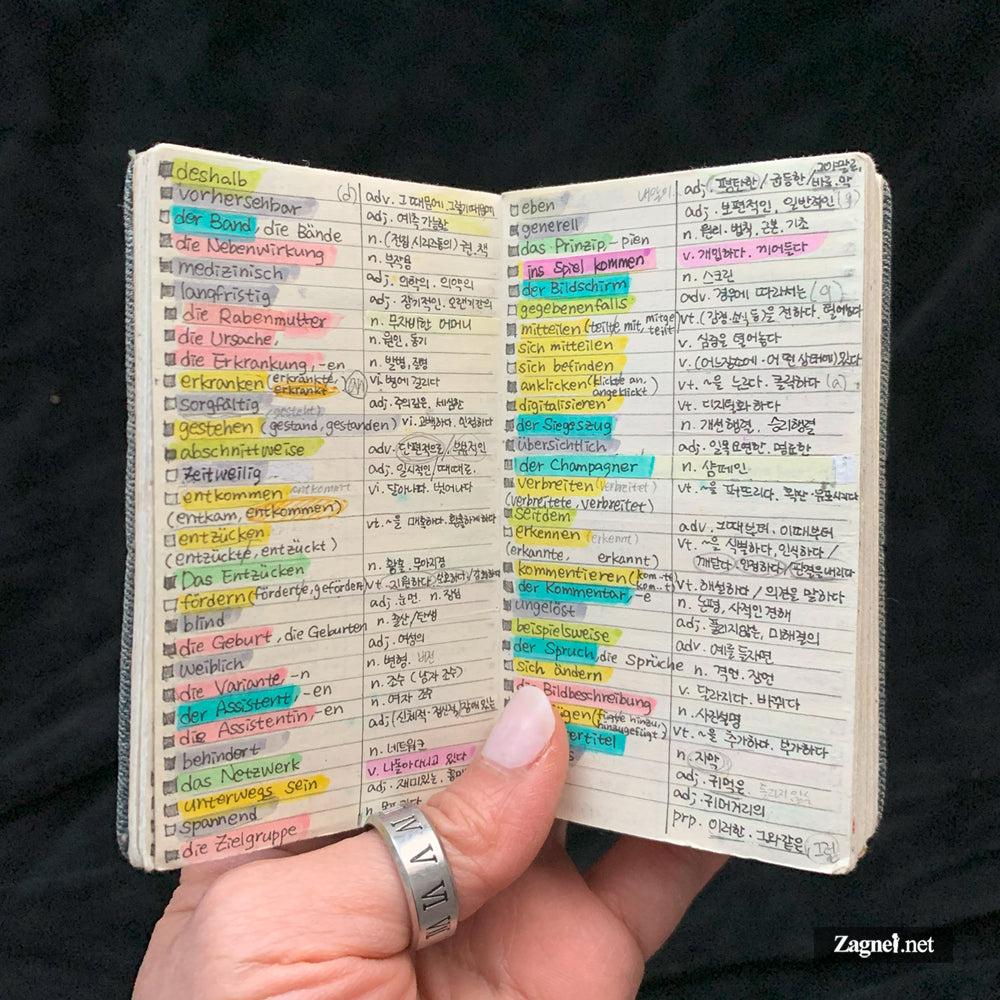 deshalb
adv. 그 때문에, 그렇기 때문에
vorhersehbar (d)
adj. 예측 가능한
der Band, die Bände
n. (전집, 시리즈등의) 권, 책
die Nebenwirkung
n. 부작용
medizinisch
adj. 의학의. 의약의
langfristig
adj. 장기적인. 오랜기간의
die Rabenmutter
n. 무자비한 어머니
die Ursache,
n. 원인, 동기
die Erkrankung, -en
n. 발병, 질병
erkranken (erkrankte, erkrankt)
vi. 병에 걸리다
sorgfältig
adj. 주의깊은. 세심한
gestehen (gestand, gestanden)
vi. 고백하다, 인정하다
abschnittweise
adv. 단편적으로 / 부분적인
zeitweilig
adj. 일시적인 / 때때로.
entkommen entkommt
vi. 달아나다. 벗어나다
(entkam, entkommen)
entzücken
vt. ~을 매혹하다. 황홀하게하다
(entzückte, entzückt)
Das Entzücken
n. 황홀, 무아지경
fördern (förderte, gefördert)
vt. 지원하다
blind
adj. 눈먼. n. 장님
die Geburt, die Geburten
n. 출산/탄생
weiblich
adj. 여성의
die Variante, -n
n. 변형. 버전
der Assistent, -en
n. 조수 (남자 조수)
die Assistentin, -en
n. 여자 조수
behindert
adj. (신체적·정신적) 장애 있는
das Netzwerk
n. 네트워크
unterwegs sein
v. 나돌아다니고 있다
spannend
adj. 재미있는.
die Zielgruppe
n.
그야말로,
eben
adj. 평탄한 / 균등한 / 바로. 막
generell
adj. 보편적인, 일반적인
das Prinzip, -pien
n. 원리. 법칙, 근본. 기초
ins Spiel kommen
v. 개입하다. 끼어들다
der Bildschirm
n. 스크린
gegebenenfalls
adv. 경우에 따라서는
mitteilen (teilte mit, mitgeteilt)
vt. (감정·소식 등)을 전하다, 털어놓다
sich mitteilen
v. 심금을 털어놓다
sich befinden
v. (어느장소에·어떤 상태에) 있다
anklicken (klickte an, angeklickt)
vt. ~을 누르다. 클릭하다 (a)
digitalisieren
vt. 디지털화 하다
der Siegeszug
n. 개선행렬. 승리행렬
übersichtlich
adj. 일목요연한. 명료한
der Champagner
n. 샴페인
verbreiten (verbreitet)
vt. ~을 퍼뜨리다. 확산·유포시키다
(verbreitete, verbreitet)
seitdem
adv. 그때부터, 이때부터
erkennen (erkennt)
vt. ~을 식별하다, 인식하다 /
(erkannte, erkannt)
깨닫다 인정하다 / 판결을내리다
kommentieren (kom-te, kom..t)
vt. 해설하다 / 의견을 말하다
der Kommentar -e
n. 논평, 사적인 견해
ungelöst
adj. 풀리지않는, 미해결의
beispielsweise
adv. 예를 들자면
der Spruch, die Sprüche
n. 격언. 잠언
sich ändern
v. 달라지다. 바뀌다
die Bildbeschreibung
n. 사진설명
(fügte hinzu, hinzugefügt)
vt. ~을 추가하다. 부가하다
ertitel
n. 자막
adj. 귀먹은.
adj. 귀머거리의
prp. 이러한. 그와같은
Zagnet.net